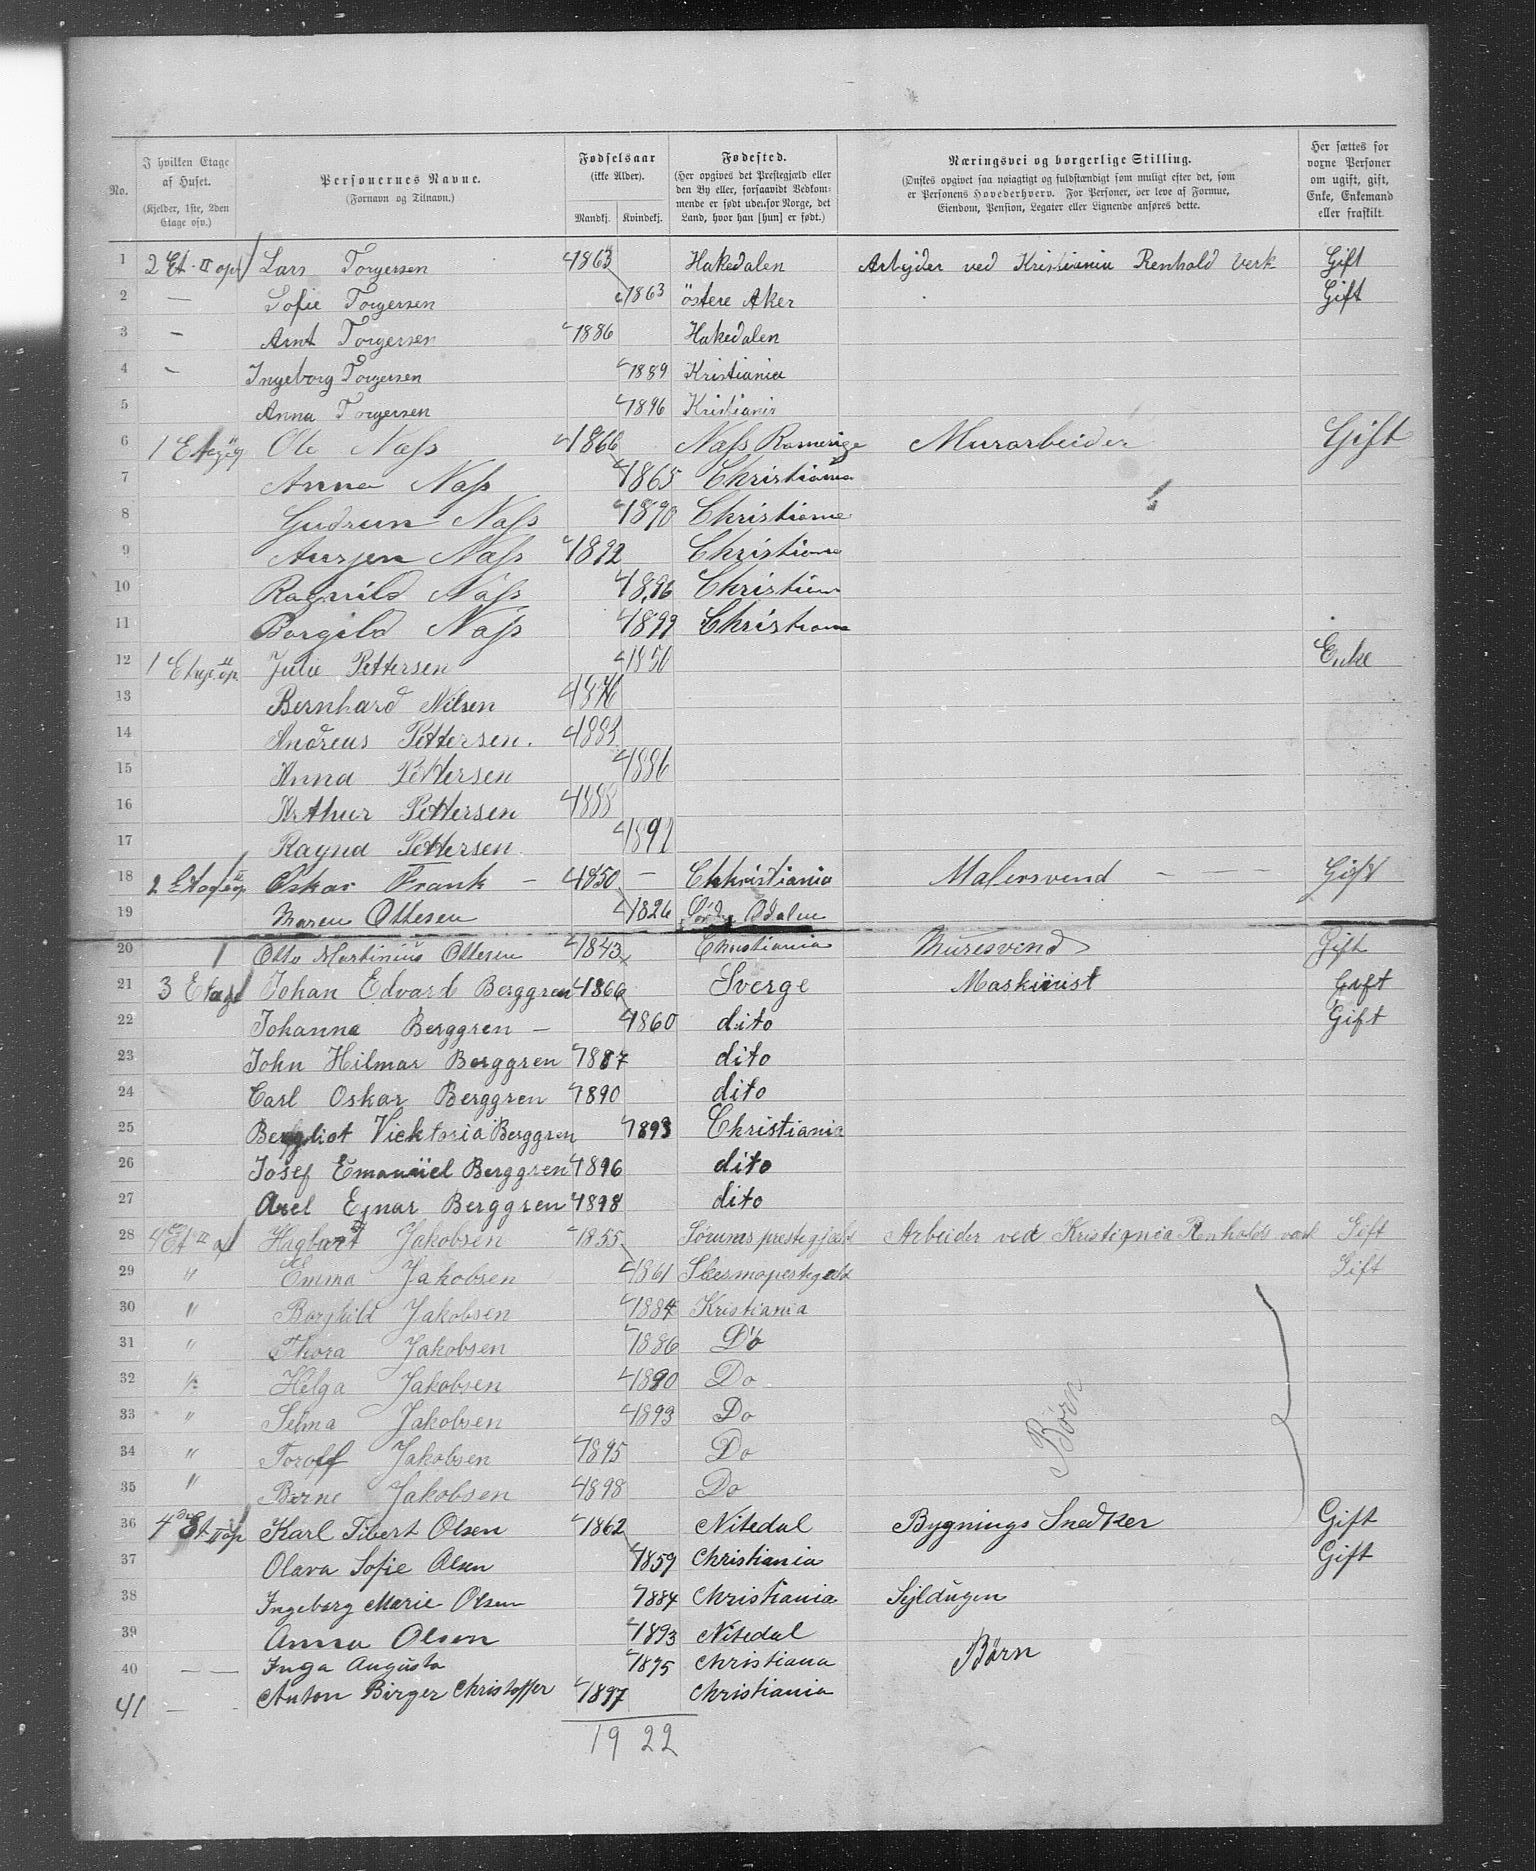 No.
I hvilken Etage af Huset.
(Kjelder, 1ste, 2den Etage osv.)
Personernes Navne.
(Fornavn og Tilnavn.)
Fødselsaar
(ikke Alder).
Mandkj. Kvindekj.
Fødested.
(Her opgives det Prestegjæld eller den By eller, forsaavidt Vedkommende er født udenfor Norge, det Land, hvor han [hun] er født.)
Næringsvei og borgerlige Stilling.
(Ønskes opgivet saa nøiagtigt og fuldstændigt som muligt efter det, som er Personens Hovederhverv. For Personer, der leve af Formue, Eiendom, Pension, Legater eller Lignende anføres dette.
Her sættes for voxne Personer om ugift, gift, Enke, Enkemand eller fraskilt.
1 2 Et. II op Lars Torgersen 1863 Hakedalen Arbejder ved Kristiania Renhold Verk Gift
2 — Sofie Torgersen 1863 östere Aker Gift
3 — Arnt Torgersen 1886 Hakedalen
4 — Ingeborg Torgersen 1889 Kristiania
5 Anna Torgersen 1896 Kristiania
6 1 Etage Ole Næss 1866 Næss Romerige Murarbeider Gift
7 Anna Næss 1865 Christiania
8 Gudrun Næss 1890 Christiania
9 Næss 1892 Christiania
10 Ragnild Næss 1896 Christiania
11 Borgild Næss 1899 Christiania
12 1 Etage II op Julie Pettersen 1850 Enke
13 Bernhard Nilsen 1876
14 Andreas Pettersen. 1883
15 Anna Pettersen 1886
16 Arthur Pettersen 1888
17 Ragna Pettersen 1892
18 2 Etage II op Oskar Frank — 1850 — Chhristiania Malersvend — — — Gift
19 Maren Ottesen 1826 Odalen
20 Otto Martinius Ottesen 1843 Christiania Muresvend Gift
21 3 Etage Johan Edvard Berggren 1866 Sverge Maskinist Gift
22 Johanna Berggren — 1860 dito Gift
23 John Hilmar Berggren 1887 dito
24 Carl Oskar Berggren 1890 dito
25 Bergliot Vicktoria Berggren 1893 Christiania
26 Josef Emanuel Berggren 1896 dito
27 Axel Ejnar Berggren 1898 dito
28 4 Et II op Hagbart Jakobsen 1855 Sørums prestegjæld Arbeider ved Kristiania Renholds værk Gift
29 " Emma Jakobsen 1861 Gift
30 " Borghild Jakobsen 1884 Kristiania
31 " Thora Jakobsen 1886 Do
32 " Helga Jakobsen 1890 Do
33 " Selma Jakobsen 1893 Do
Børn
34 " Torolf Jakobsen 1895 Do
35 " Berne Jakobsen 1898 Do
36 4de Et II op Karl Tibert Olsen 1862 Nitedal Bygnings Snedker Gift
37 Olava Sofie Olsen 1859 Christiania Gift
38 Ingeborg Marie Olsen 1884 Christiania Sejldugen
39 Anna Olsen 1893 Nitedal
Børn
40 — — Inga Augusta 1895 Christiana
41 — Anton Birger Christoffer 1897 Christiania
19 22